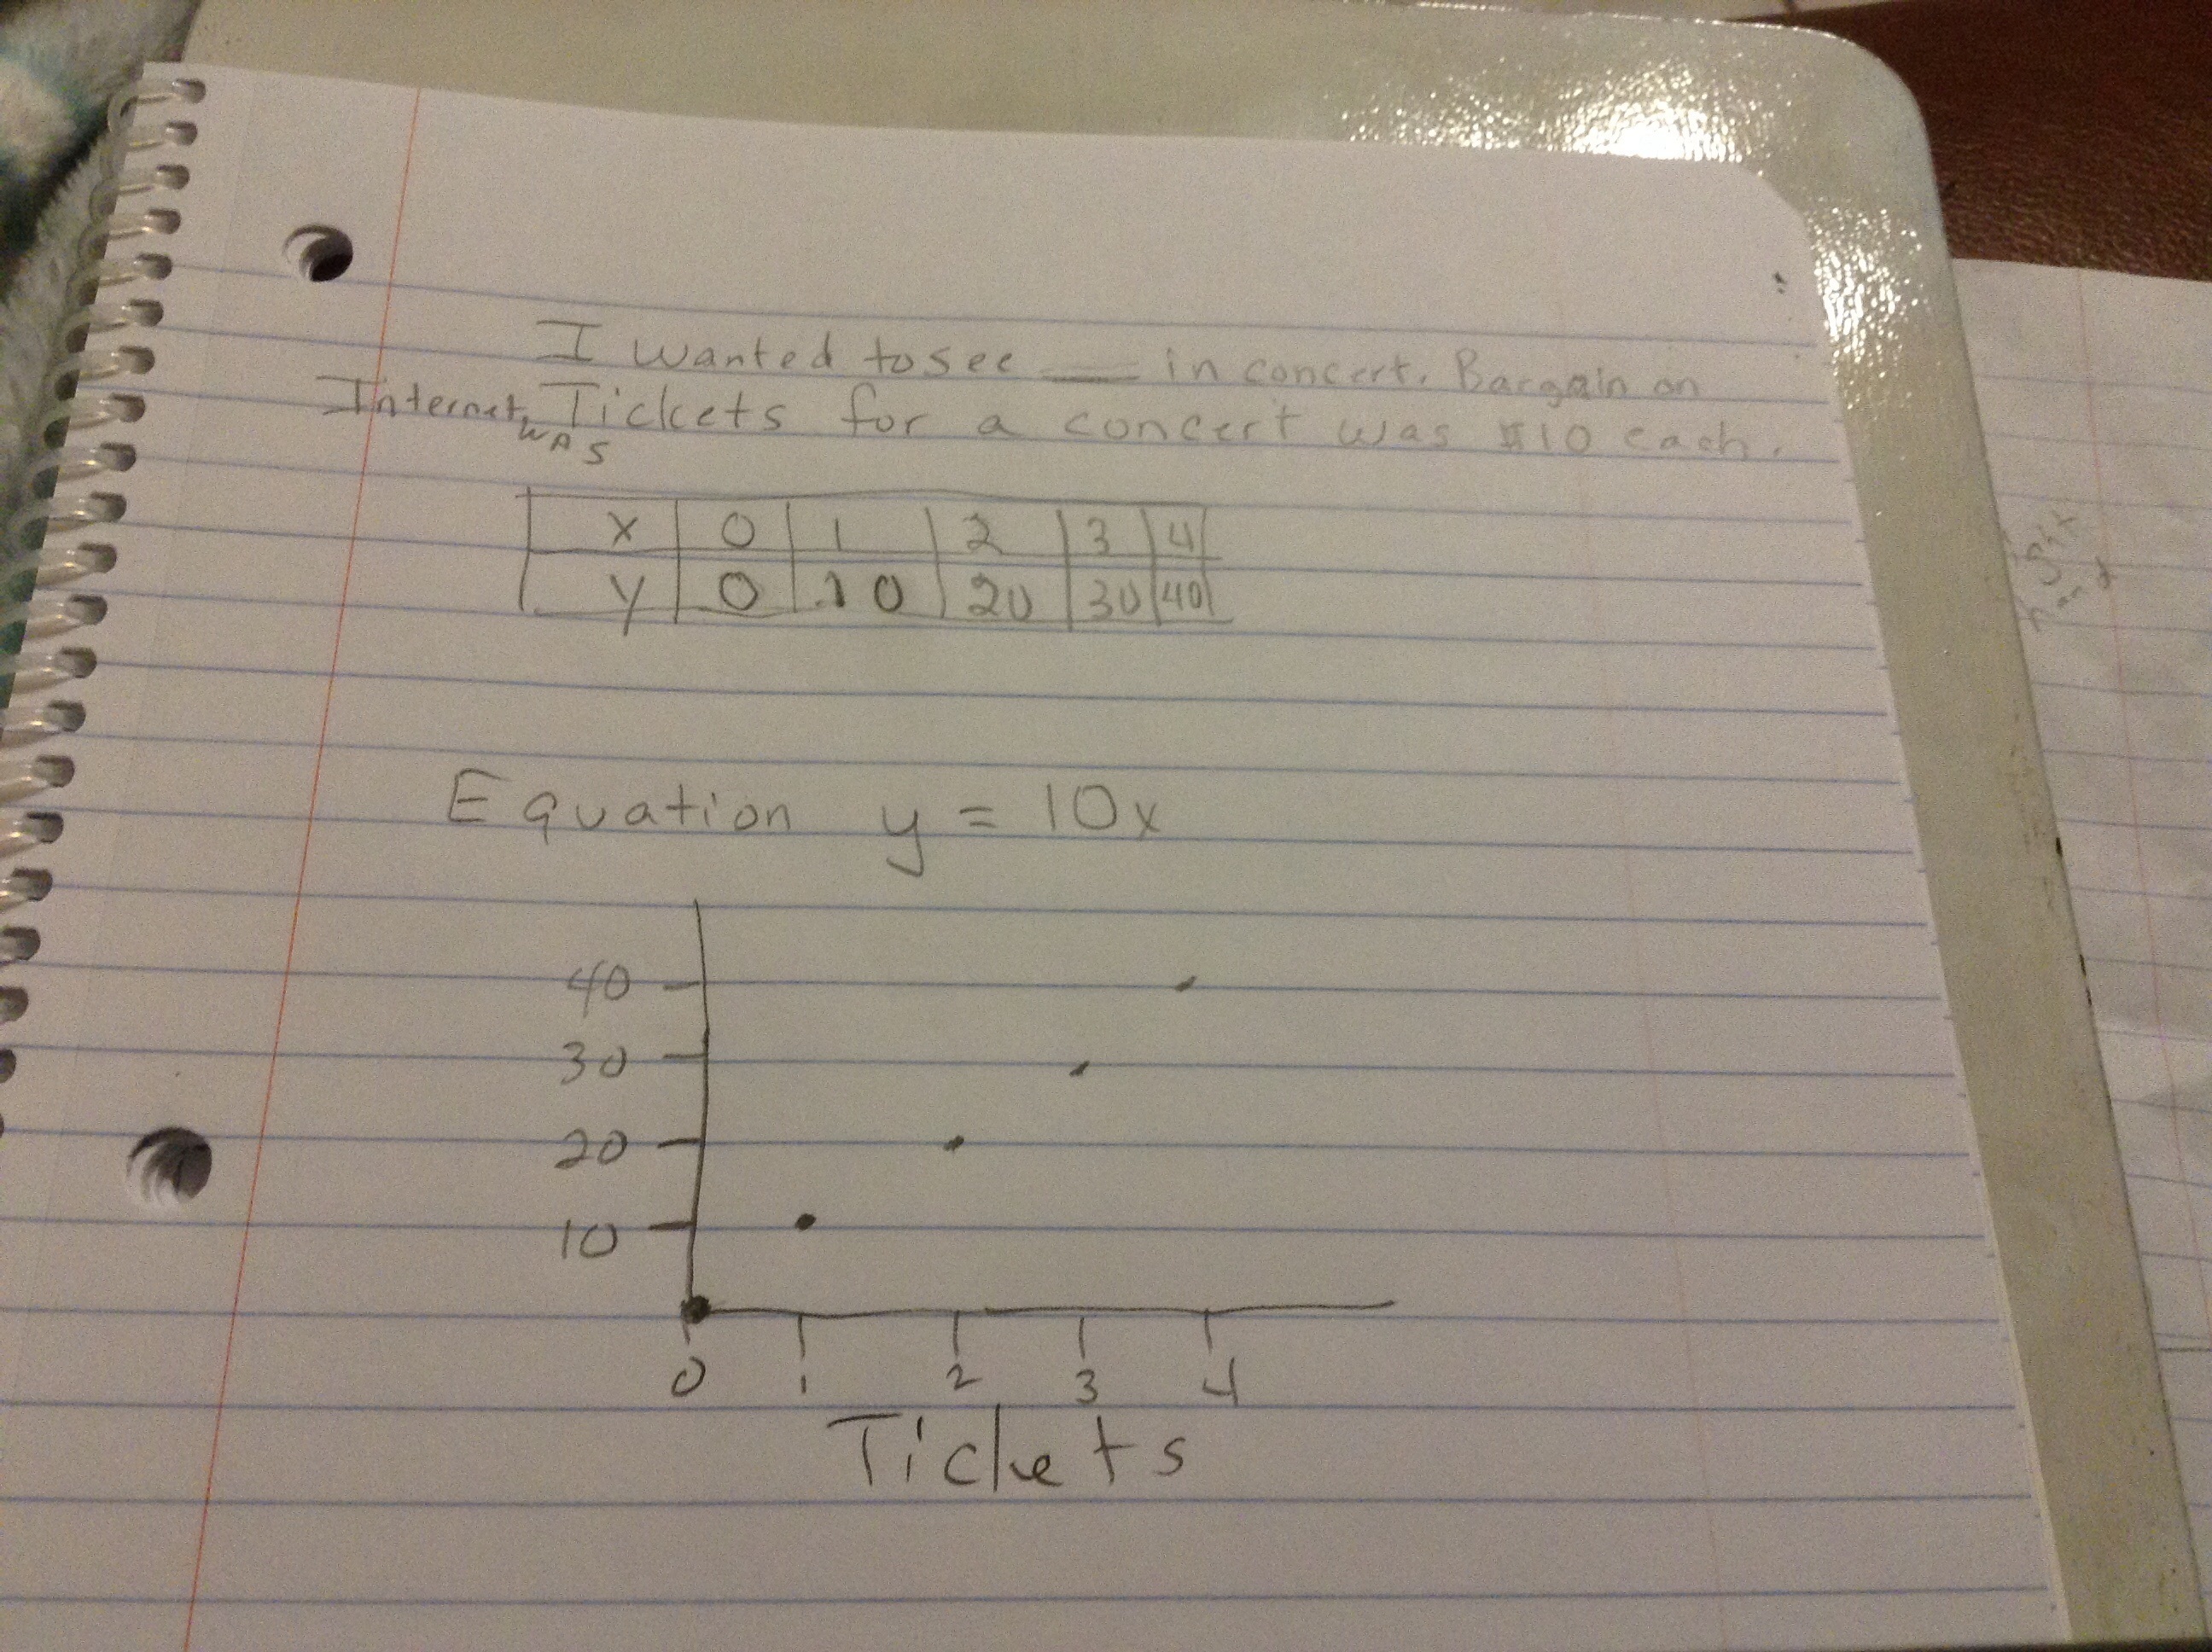 I wanted to see ___ in concert. Bargain on
Internet was Tickets for a concert was $10 each.
x 0 1 2 3 4
y 0 10 20 30 40
Equation y = 10x
40
30
20
10
0 1 2 3 4
Tickets